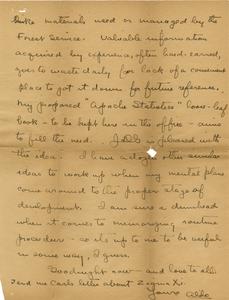 materials used or managed by the
Forest Service. Valuable information
acquired by experience, often hard-earned,
goes to waste daily for lack of a convenient
place to put it down for future reference.
My proposed "Apache Statistics" loose-leaf
book - to be kept here in the office - aims
to fill the need. is pleased with
the idea. I have a dozen other similar
ideas to work up when my mental plans
come around to the proper stage of
development. I am sure a dumbhead
when it comes to memorizing routine
procedure - so it's up to me to be useful
in some way, I guess.
Goodnight now - and love to all.
Send me Carl's letter about
Yours Aldo